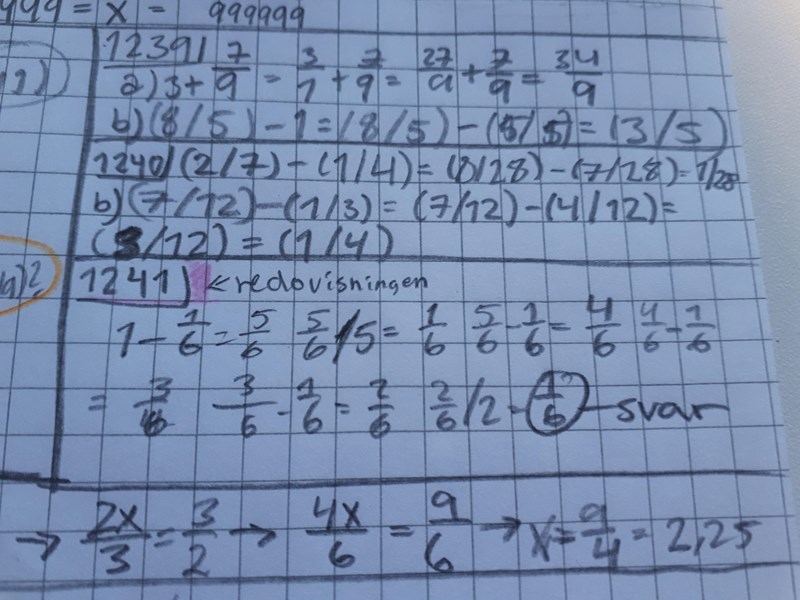 999 = x = 999999
1239/ 7
a) 3 + 7/9 = 3/1 + 7/9 = 27/9 + 7/9 = 34/9
b) (8/5) - 1 = (8/5) - (5/5) = (3/5)
1240/ (2/7) - (1/4) = (8/28) - (7/28) = 1/28
b) (7/12) - (1/3) = (7/12) - (4/12) =
(3/12) = (1/4)
1241) ← redovisningen
1 - 1/6 = 5/6 5/6 /5 = 1/6 5/6 - 1/6 = 4/6 4/6 - 1/6
= 3/6 3/6 - 1/6 = 2/6 2/6 /2 - 1/6 - svar
→ 2x/3 = 3/2 → 4x/6 = 9/6 → x = 9/4 = 2,25